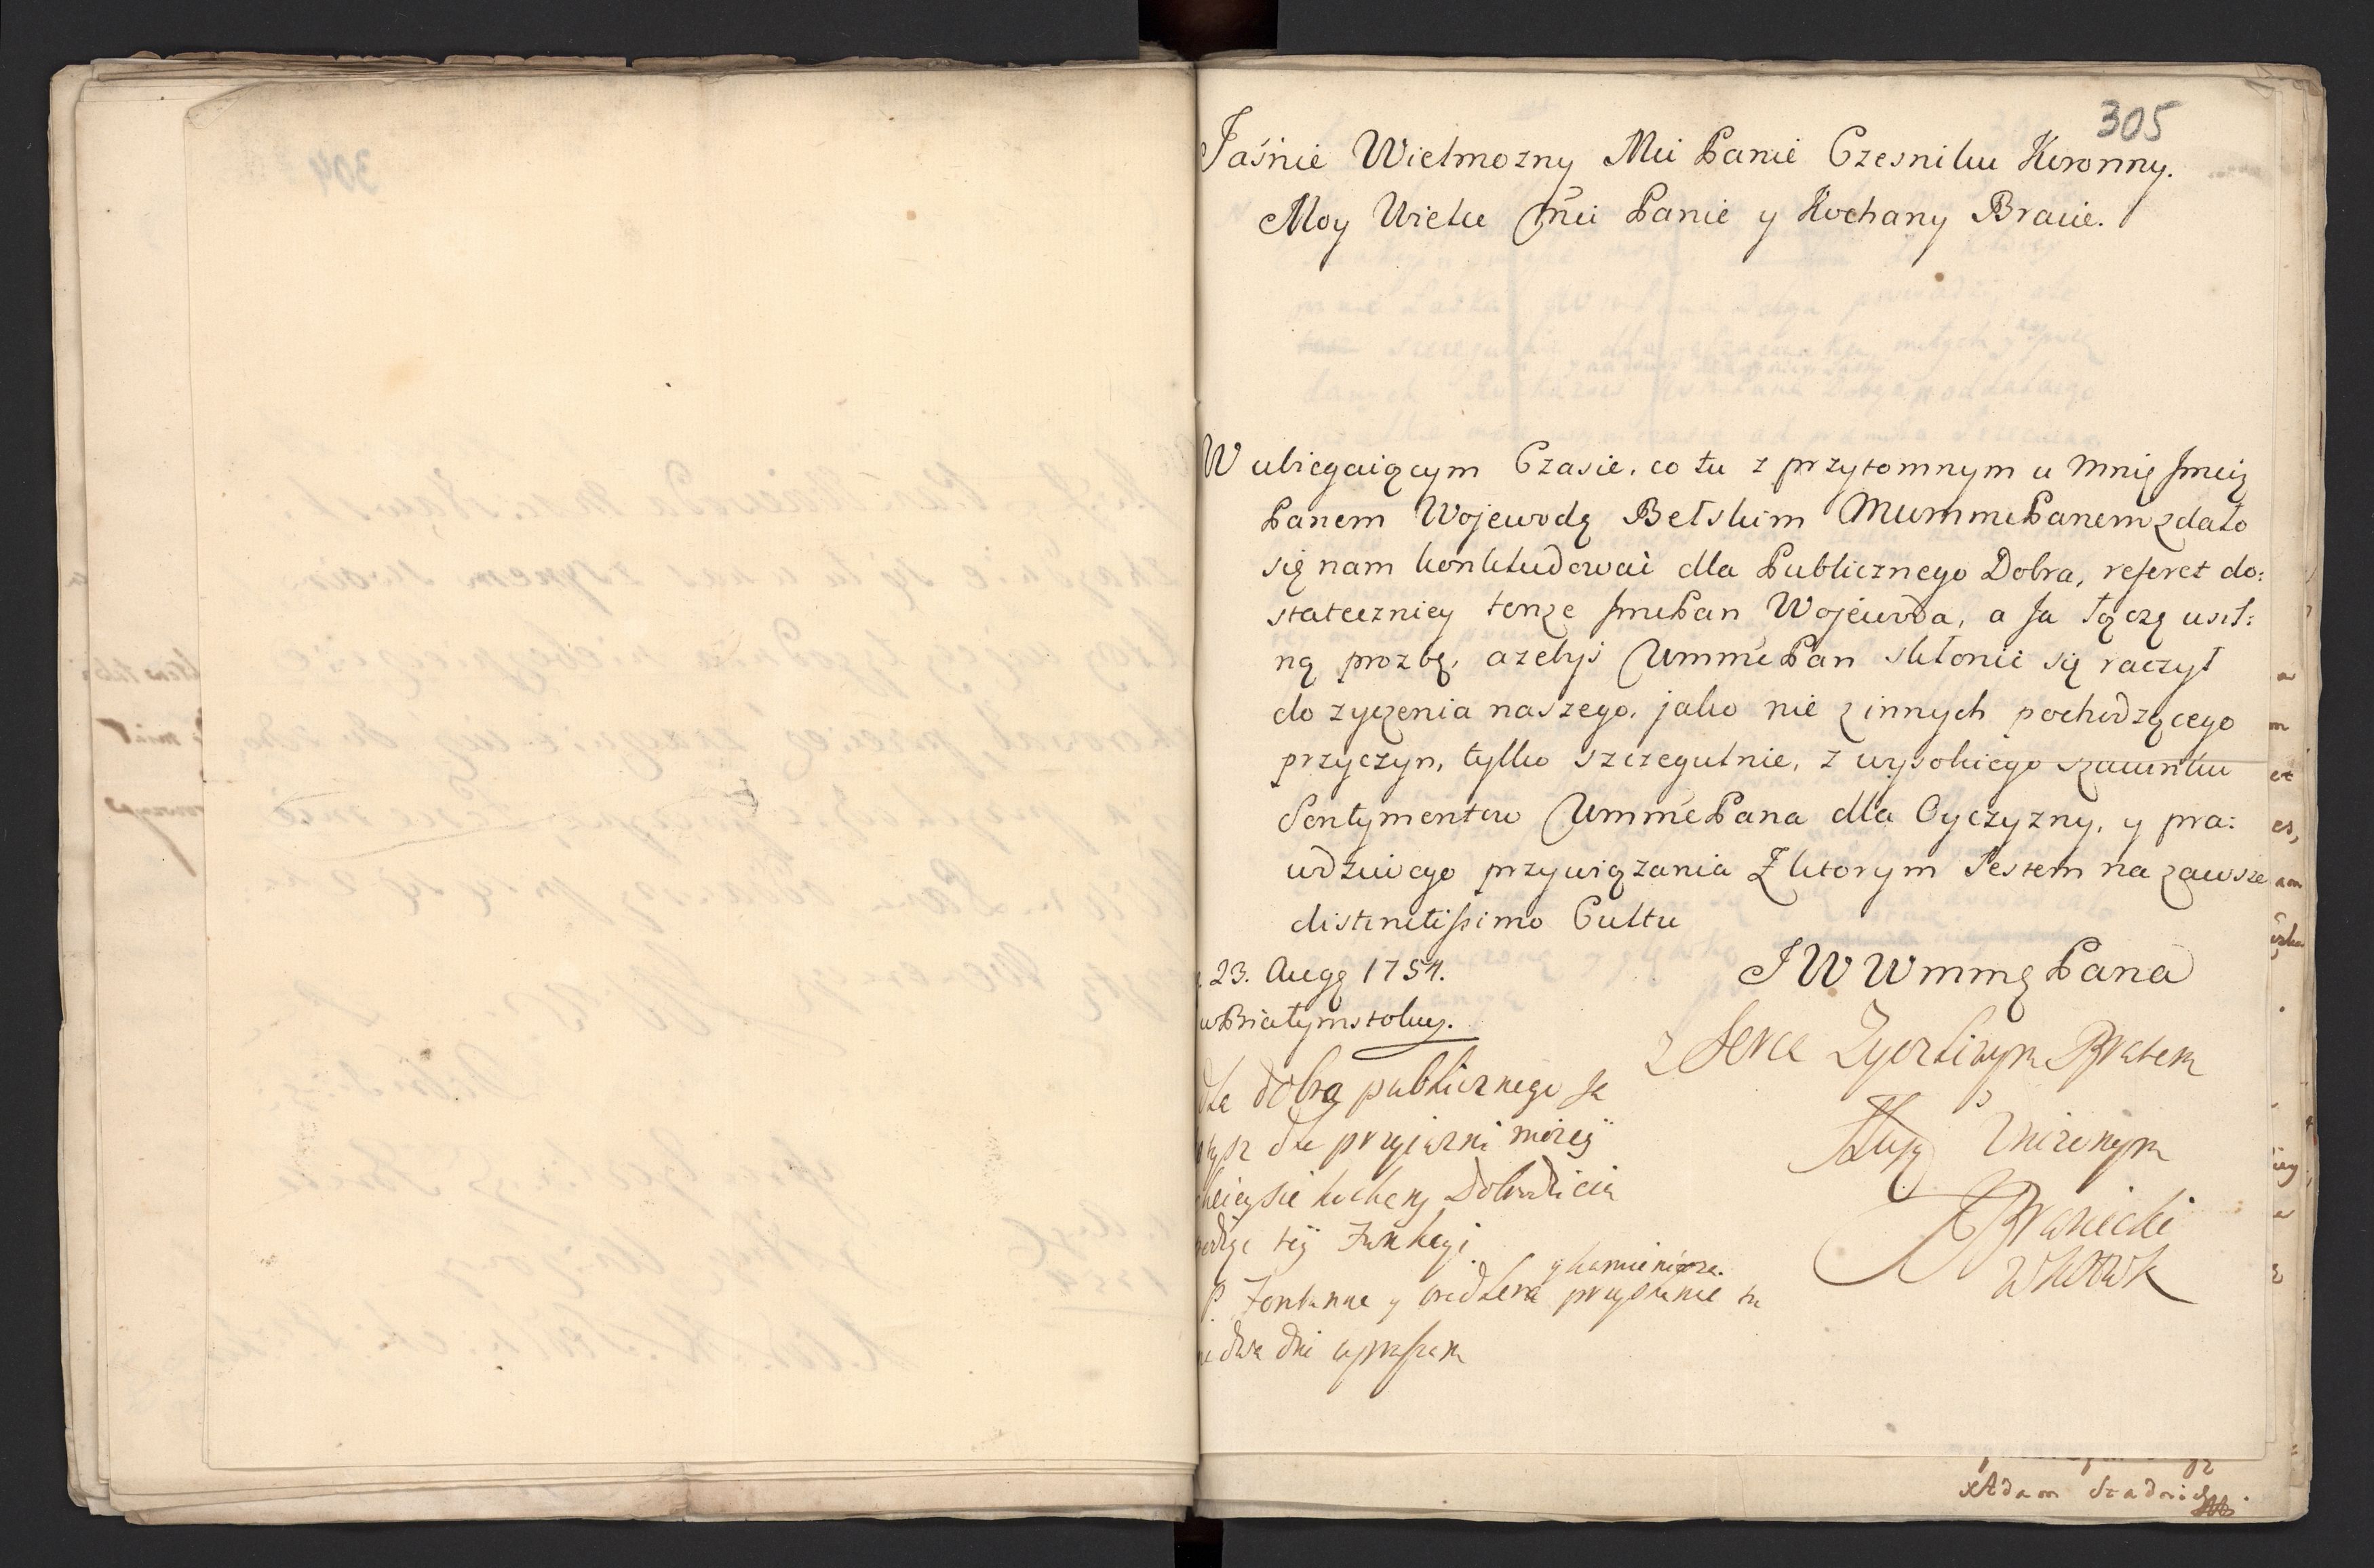 305
Jaśnie Wielmozny Mci Panie Czesniku Koronny.
Moy Wielce Mci Panie y Kochany Bracie.
W ubiegaiącym Czasie, co tu z przytomnym u mnie Jmcią
Panem Wojewodą Bełskim MwmmPanem zdało
się nam konkludować dla Publicznego Dobra, referet do:
stateczniey tenże JmcPan Wojewoda, a Ja łączę usil:
ną prozbę, azebyś WmmcPan skłonić się raczył
do zyczenia naszego, jako nie z innych pochodzącego
przyczyn, tylko szczegulnie, z wysokiego szacunku
Sentymentow WmmcPana dla Oyczyzny, y pra:
wdziwego przywiązania Z ktorym Jestem na zawsze
distinctissimo Cultu
23. Augę 1754.
w Białymstoku.
JW Wmmę Pana
z Serca Zyczliwym Bratem
y Sługą Unizonym
JK Branicki
WKHPWK
dla dobra publicznego Ja
tysz dla przyiazni moiey
chciey sie kochany Dobrodzieiu
podiąc tey Funkcyi
y kamieniarza.
P. Fontanne y przysłanie tu
na dwa dni upraszam
Adam Stadnicki